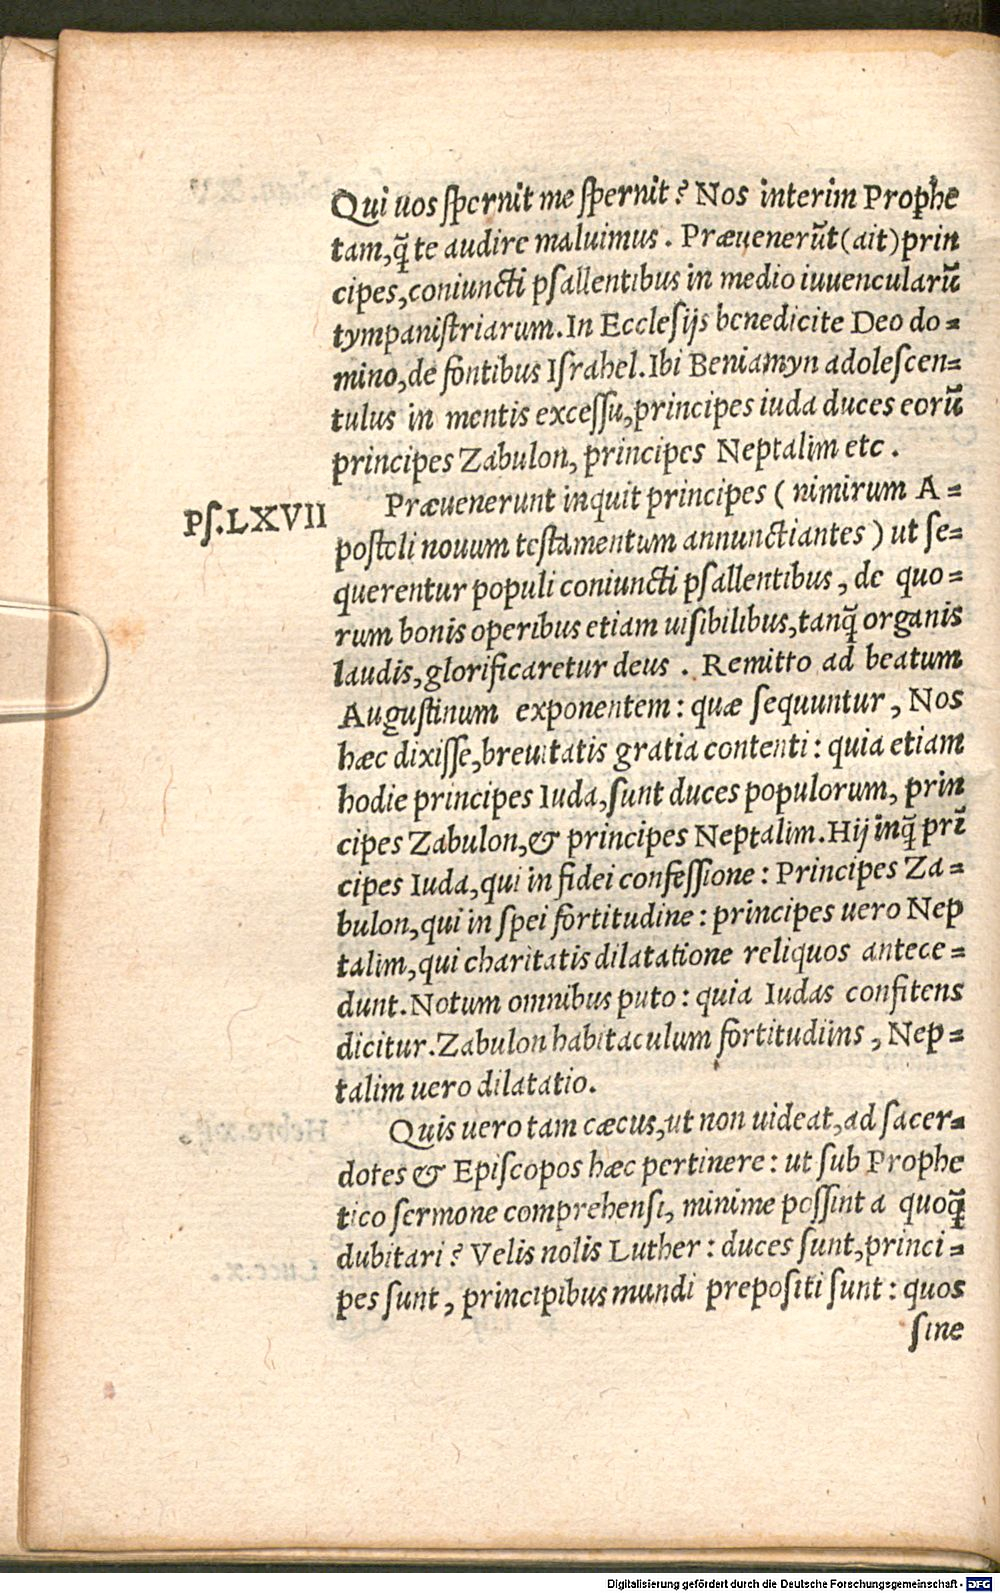 Qui uos ſpernit me ſpernit? Nos interim Prophe
tam, q̃ te audire maluimus. Præuenerũt (ait) prin
cipes, coniuncti pſallentibus in medio iuuencularũ
tympaniſtriarum. In Eccleſijs benedicite Deo do=
mino, de fontibus Iſrahel. Ibi Beniamyn adoleſcen=
tulus in mentis exceſſu, principes iuda duces eorũ
principes Zabulon, principes Neptalim etc.
Pſ. LXVII
Præuenerunt inquit principes (nimirum A=
poſtoli nouum teſtamentum annunctiantes) ut ſe=
querentur populi coniuncti pſallentibus, de quo=
rum bonis operibus etiam uiſibilibus, tanq̃ organis
laudis, glorificaretur deus. Remitto ad beatum
Auguſtinum exponentem: quæ ſequuntur, Nos
hæc dixiſſe, breuitatis gratia contenti: quia etiam
hodie principes Iuda, ſunt duces populorum, prin
cipes Zabulon, & principes Neptalim. Hij inq̃ prĩ
cipes Iuda, qui in fidei confeſſione: Principes Za=
bulon, qui in ſpei fortitudine: principes uero Nep
talim, qui charitatis dilatatione reliquos antece=
dunt. Notum omnibus puto: quia Iudas confitens
dicitur. Zabulon habitaculum fortitudiins, Nep=
talim uero dilatatio.
Quis uero tam cæcus, ut non uideat, ad ſacer=
dotes & Epiſcopos hæc pertinere: ut ſub Prophe
tico ſermone comprehenſi, minime poſſint a quoq̃
dubitari? Velis nolis Luther: duces ſunt, princi=
pes ſunt, principibus mundi prepoſiti ſunt: quos
ſine
Digitalisierung gefördert durch die Deutsche Forschungsgemeinschaft - DFG